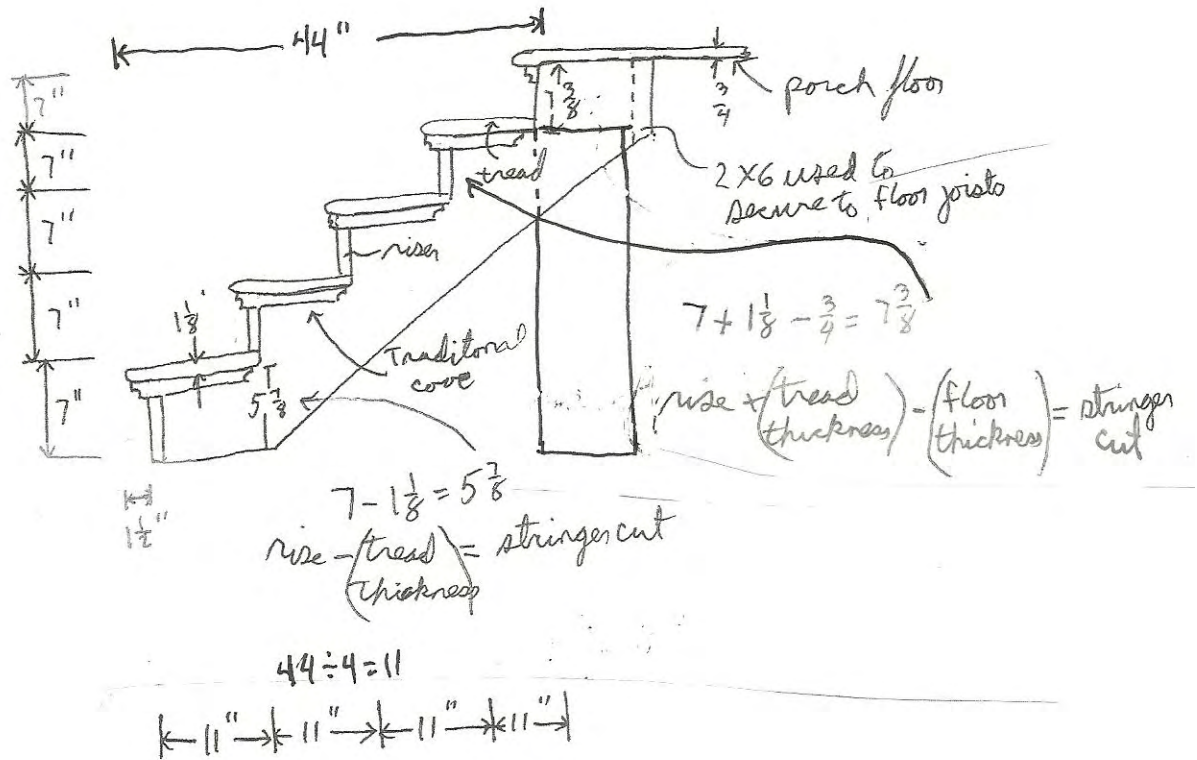 44"
7"
7"
7"
7"
7"
7 3/8
3/4
porch floor
tread
2x6 used to
secure to floor joists
riser
7 + 1 1/8 - 3/4 = 7 3/8
1 1/8
Traditional
cove
5 7/8
rise + (tread thickness) - (floor thickness) = stringer cut
1 1/2"
7 - 1 1/8 = 5 7/8
rise - (tread thickness) = stringer cut
44 ÷ 4 = 11
11" 11" 11" 11"